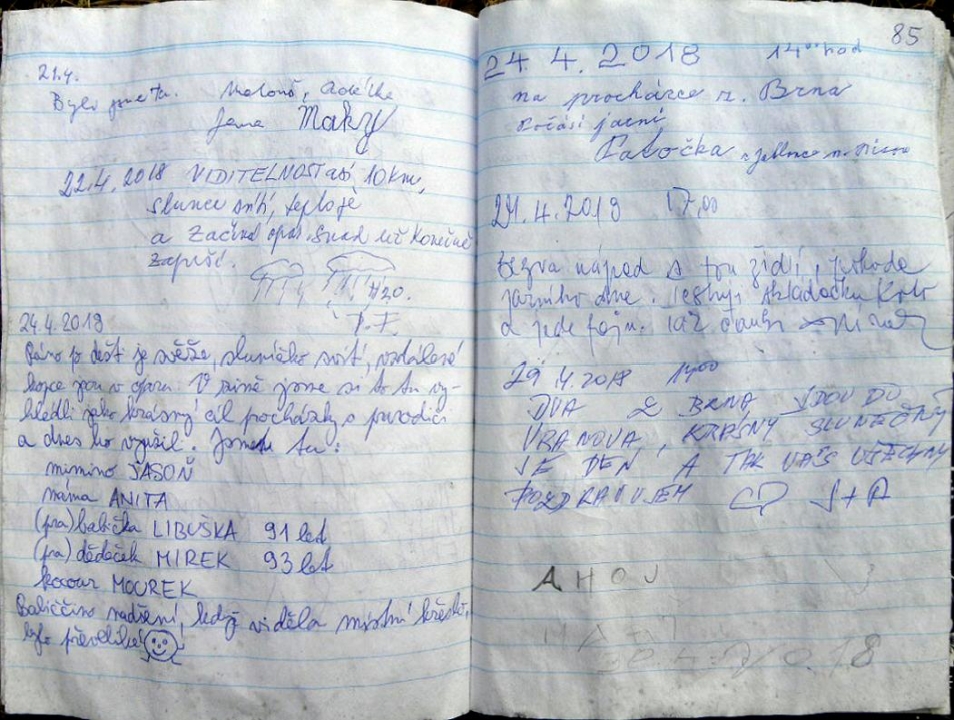 21.4.
Byli jsme tu.
Jana Maky
22.4.2018 VIDITELNOST asi 10 km,
slunce svítí, teplo je
a začíná opar. Snad už konečně
zaprší.
H2O.
24.4.2018
Ráno po dešti je svěže, sluníčko svítí, vzdálené
kopce jsou v oparu. V zimě jsme si to tu vy-
hlédli jako krásný cíl pocházky s prarodiči
a dnes ho využil. Jsme tu:
mimino JASOŇ
máma ANITA
(pra)babička LIBUŠKA 91 let
(pra)dědeček MIREK 93 let
kocour MOUREK
Babiččino nadšení, když viděla místní křesílko,
bylo převeliké!
85
24. 4. 2018 14⁰⁰ hod
na procházce z. Brna
Počasí jasní
Patočka
24.4.2018 17,00
bezva nápad s tou židlí, pohoda
jarního dne.
a jede fajn.
29.4.2018 14⁰⁰
DVA Z BRNA JDOU DO
VRANOVA, KRÁSNÝ SLUNEČNÝ
JE DEN A TAK VÁS VŠECHNY
POZDRAVUJEM J+A
AHOJ